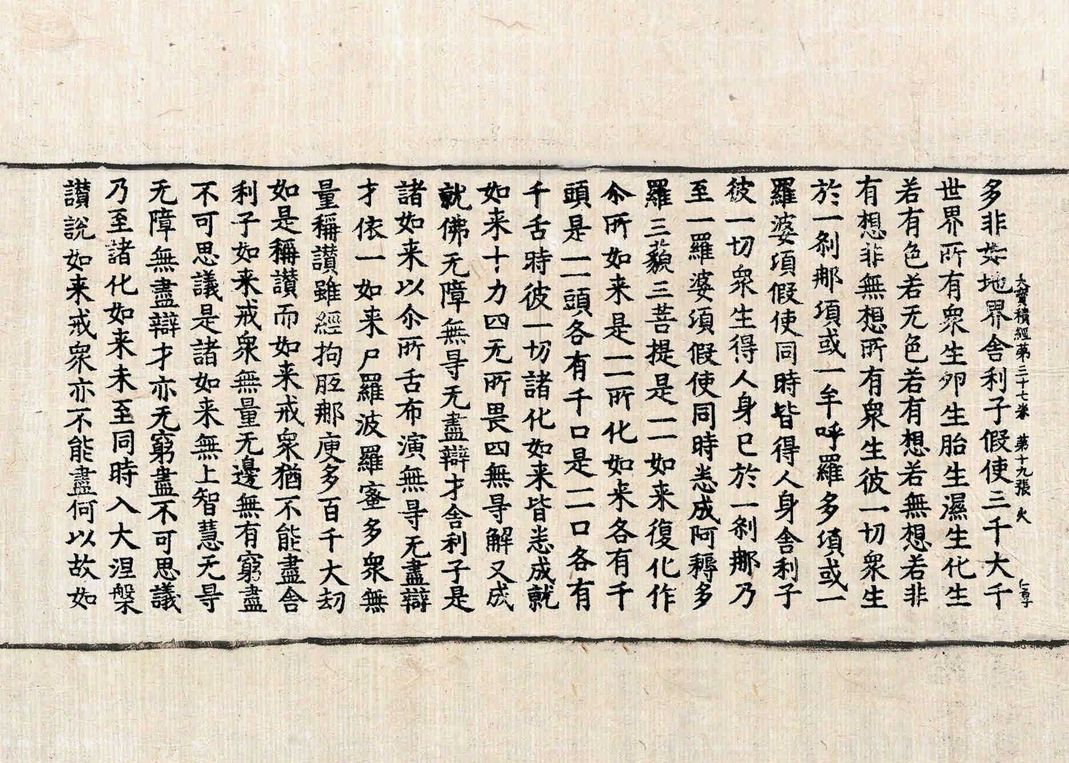 大寶積經第三十七卷　第十九張　火
多非㘴地界舍利子假使三千大千
世界所有衆生卵生胎生濕生化生
若有色若无色若有想若無想若非
有想非無想所有衆生彼一切衆生
於一剎那項或一牟呼羅多項或一
羅婆項假使同時皆得人身舍利子
彼一切衆生得人身已於一剎那乃
至一羅婆須假使同時悉成阿耨多
羅三藐三菩提是一一如来復化作
尒所如来是一一所化如来各有千
頭是一一頭各有千口是一一口各有
千舌時彼一切諸化如来皆悉成就
如来十力四无所畏四無㝵解又成
就佛无障無㝵无盡辯才舍利子是
諸如来以尒所舌布演無㝵无盡辯
才依一如来尸羅波羅蜜多衆無
量稱讃雖經拘胝那庾多百千大劫
如是稱讃而如来戒衆猶不能盡舍
利子如来戒衆無量无邊無有窮盡
不可思議是諸如来無上智慧无㝵
无障無盡辯才亦无窮盡不可思議
乃至諸化如来未至同時入大涅槃
讃說如来戒衆亦不能盡何以故如